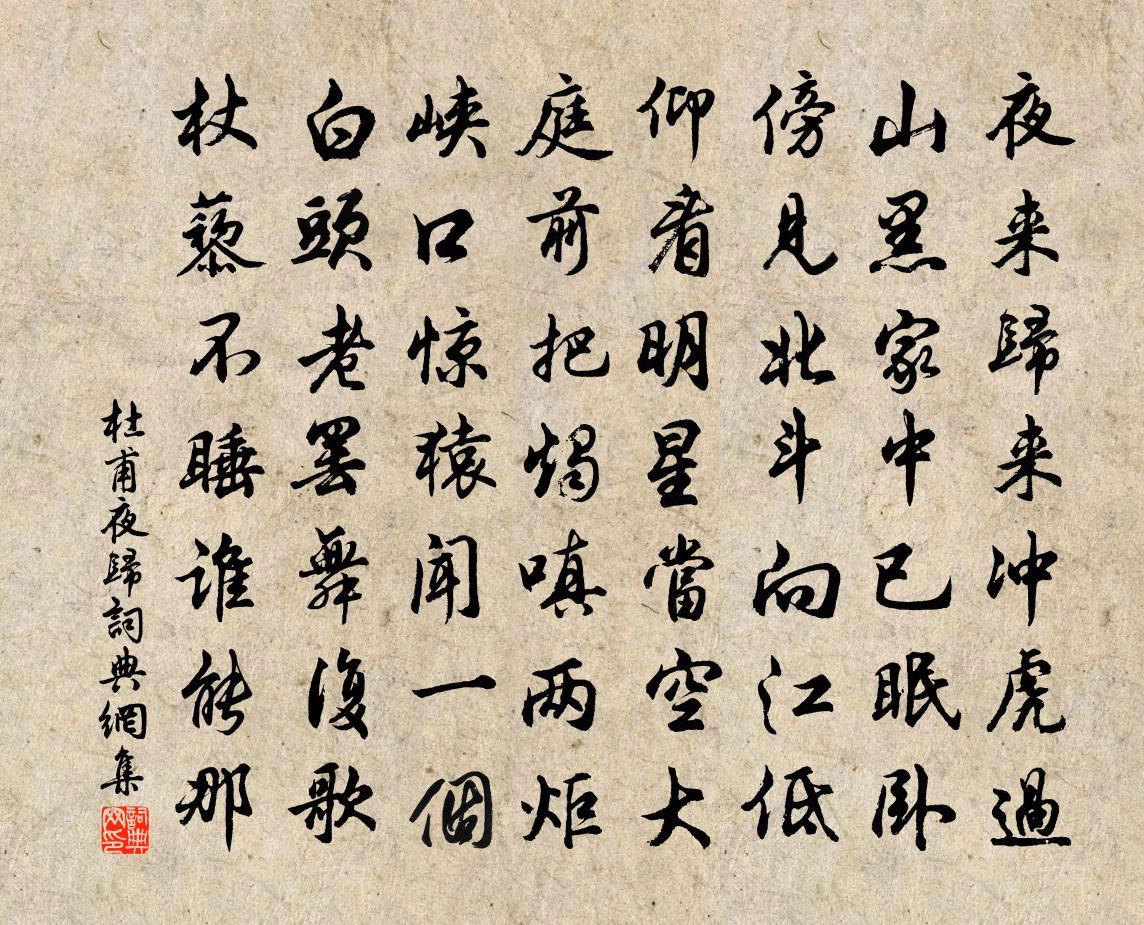 夜来歸来冲虎過
山黑家中已眠卧
傍見北斗向江低
仰看明星當空大
庭前把燭嗔两炬
峡口惊猿聞一個
白頭老罢舞復歌
杖藜不睡誰能那
杜甫夜歸詞典網集
詞典
网印